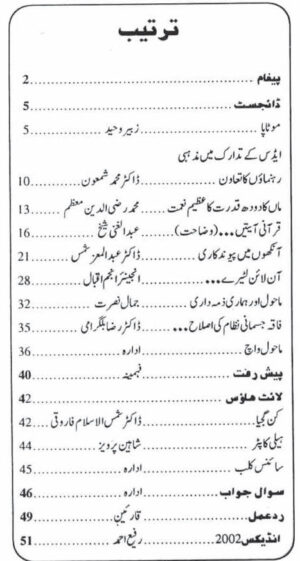 ترتیب
پیغام ........ 2
ڈائجسٹ ........ 5
موٹاپا ........ زبیر وحید ........ 5
ایڈس کے تدارک میں مذہبی
رہنماؤں کا تعاون ........ ڈاکٹر محمد شمعون ........ 10
ماں کا دودھ قدرت کا عظیم نعمت ........ محمد رضی الدین معظم ........ 13
قرآنی آیتیں... (وضاحت) ........ عبدالغنی شیخ ........ 16
آنکھوں میں پیوندکاری ........ ڈاکٹر عبدالمعز شمس ........ 21
آن لائن لٹیرے... ........ انجینئر انجم اقبال ........ 28
ماحول اور ہماری ذمہ داری ........ جمال نصرت ........ 32
فاقہ جسمانی نظام کی اصلاح... ........ ڈاکٹر رضا بلگرامی ........ 35
ماحول واچ ........ ادارہ ........ 36
پیش رفت ........ فہمینہ ........ 40
لائٹ ہاؤس ........ 42
کن گچیا ........ ڈاکٹر شمس الاسلام فاروقی ........ 42
ہیلی کاپٹر ........ شاہین پرویز ........ 44
سائنس کلب ........ ادارہ ........ 45
سوال جواب ........ ادارہ ........ 46
ردعمل ........ قارئین ........ 49
انڈیکس 2002 ........ رفیع احمد ........ 51